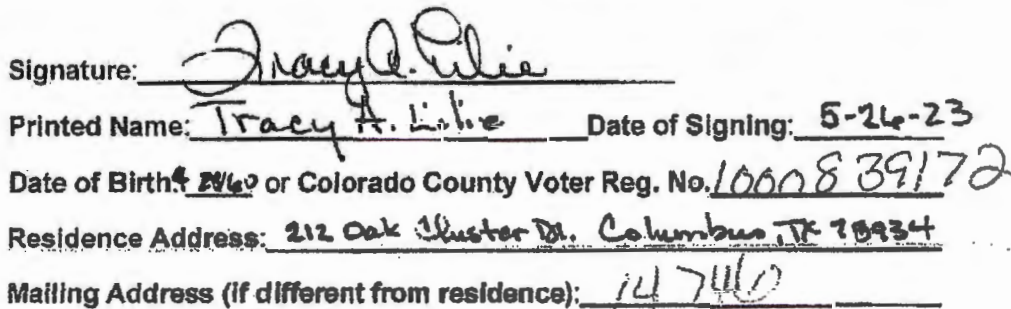 Signature: Tracy A. Lilie
Printed Name: Tracy A. Lilie Date of Signing: 5-26-23
Date of Birth: or Colorado County Voter Reg. No. 1000839172
Residence Address: 212 Oak Cluster Dr. Columbus, TX 78934
Mailing Address (if different from residence): 147460